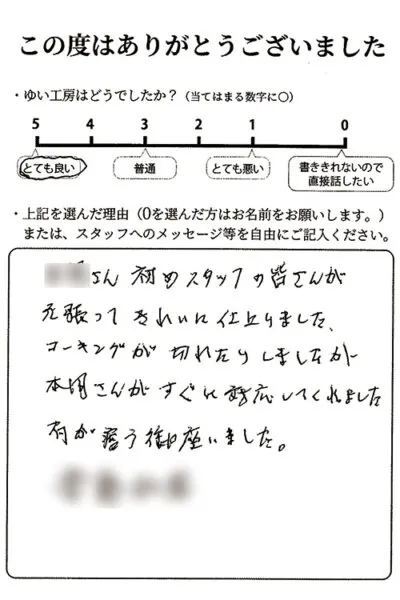 この度はありがとうございました
・ゆい工房はどうでしたか？（当てはまる数字に○）
5 4 3 2 1 0
とても良い 普通 とても悪い 書ききれないので
直接話したい
・上記を選んだ理由（0を選んだ方はお名前をお願いします。）
または、スタッフへのメッセージ等を自由にご記入ください。
さん 初めスタッフの皆さんが
頑張って きれいに仕上りました、
コーキングが 切れたりしましたが
さんがすぐに対応してくれました
有が 座いました。